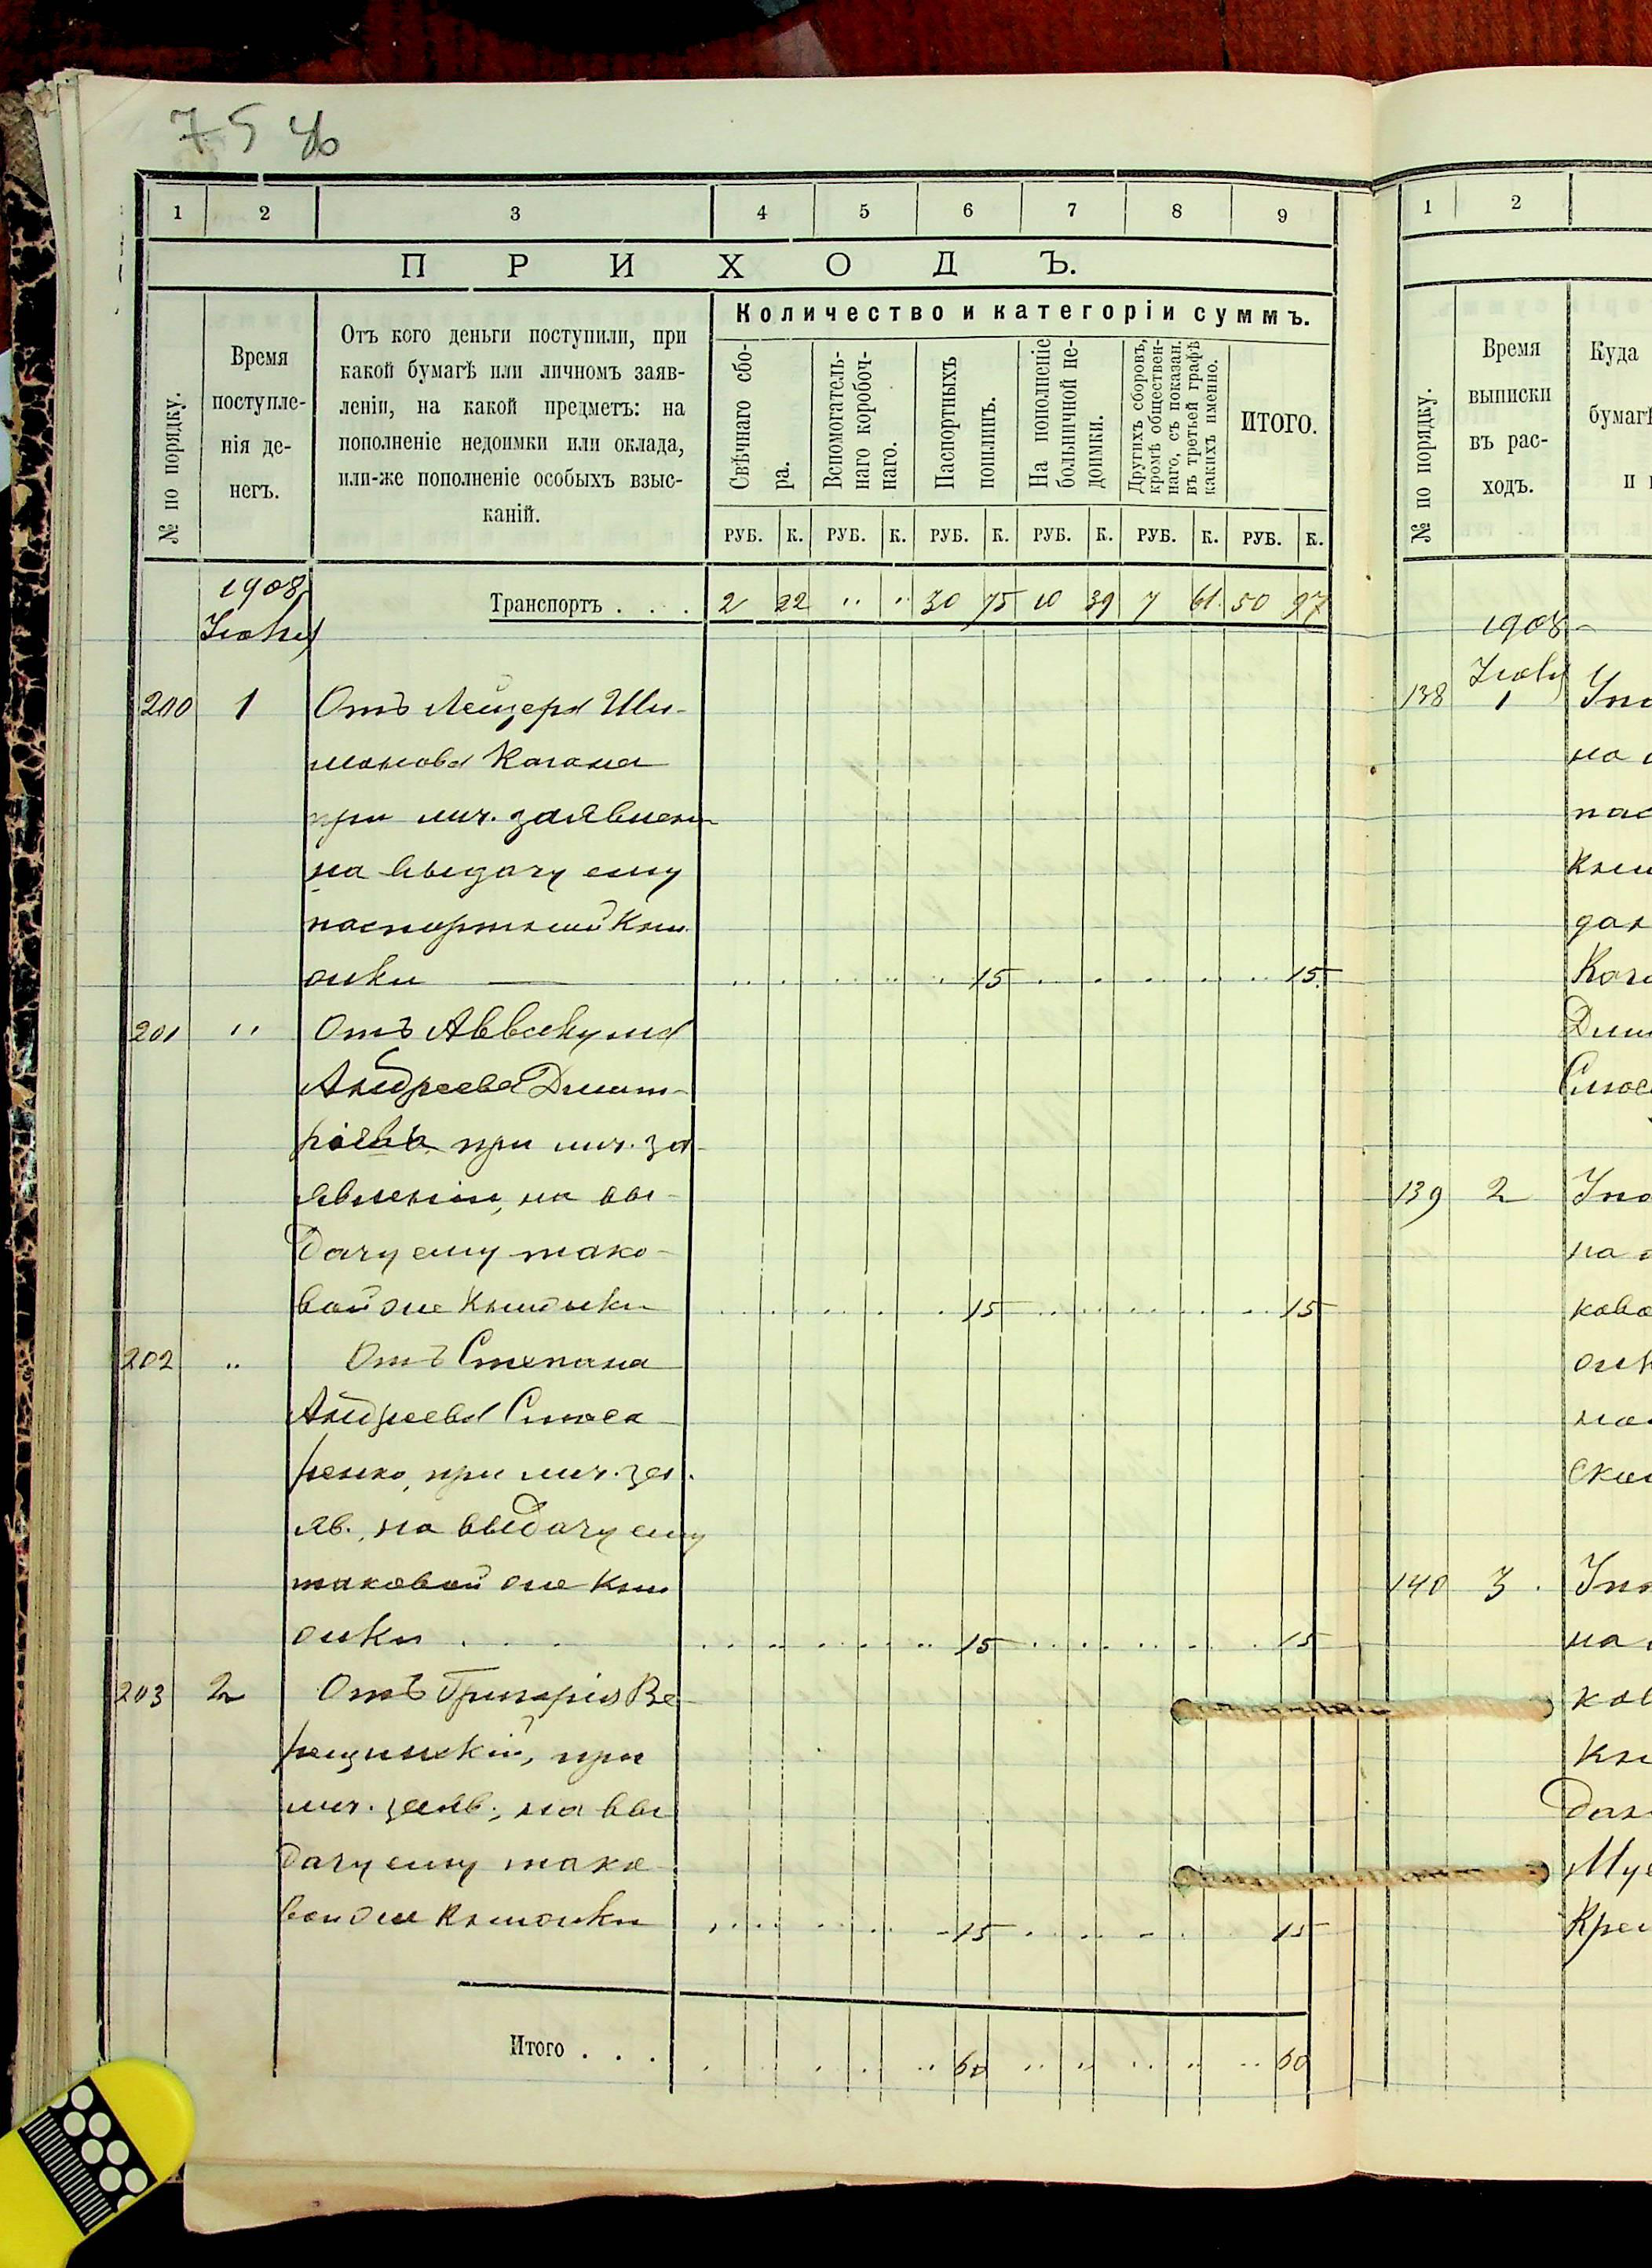 75 об
1 2 3 4 5 6 7 8 9
ПРИХОДЪ.
№ по порядку.
Время поступле-
нія де-
негъ.
Отъ кого деньги поступили, при
какой бумагѣ или личномъ заяв-
леніи, на какой предметъ: на
пополненіе недоимки или оклада,
или-же пополненіе особыхъ взыс-
каній.
Количество и категоріи суммъ.
Свѣчнаго сбо-
ра.
Вспомогатель-
наго коробоч-
наго.
Паспортныхъ
пошлинъ.
На пополненіе
больничной не-
доимки.
Другихъ сборовъ,
кромѣ обществен-
наго, съ показан.
въ третьей графѣ
какихъ именно.
ИТОГО.
РУБ. К. РУБ. К. РУБ. К. РУБ. К. РУБ. К. РУБ. К.
1908
Транспортъ . . . 2 22 " " 30 75 10 39 7 61 50 97
200 1 Отъ Лейзера Ши-
монова Кагана
при лич. заявлен
на выдачу ему
паспортной кни
жки — 15 15
201 " Отъ Аввакума
Андреева Дмит-
ріева при лич. за
явленіи, на вы-
дачу ему тако-
вой же книжки 15 15
202 " Отъ Степана
Андреева Слюса
ренко, при лич. за.
яв., на выдачу ему
таковой же кни
жки . . . 15 15
203 2 Отъ Григорія Ве-
рещинскій, при
лич. заяв., на вы
дачу ему тако
вой же книжки 15 15
Итого . . . 60 60
1 2
№ по порядку.
Время
выписки
въ рас-
ходъ.
Куда
бумагѣ
и
1908
138 1
на
пас
кни
дан
Кага
Дми
Слюса
139 2
на
ково
жк
140 3
на
ков
кн
дан
Кре